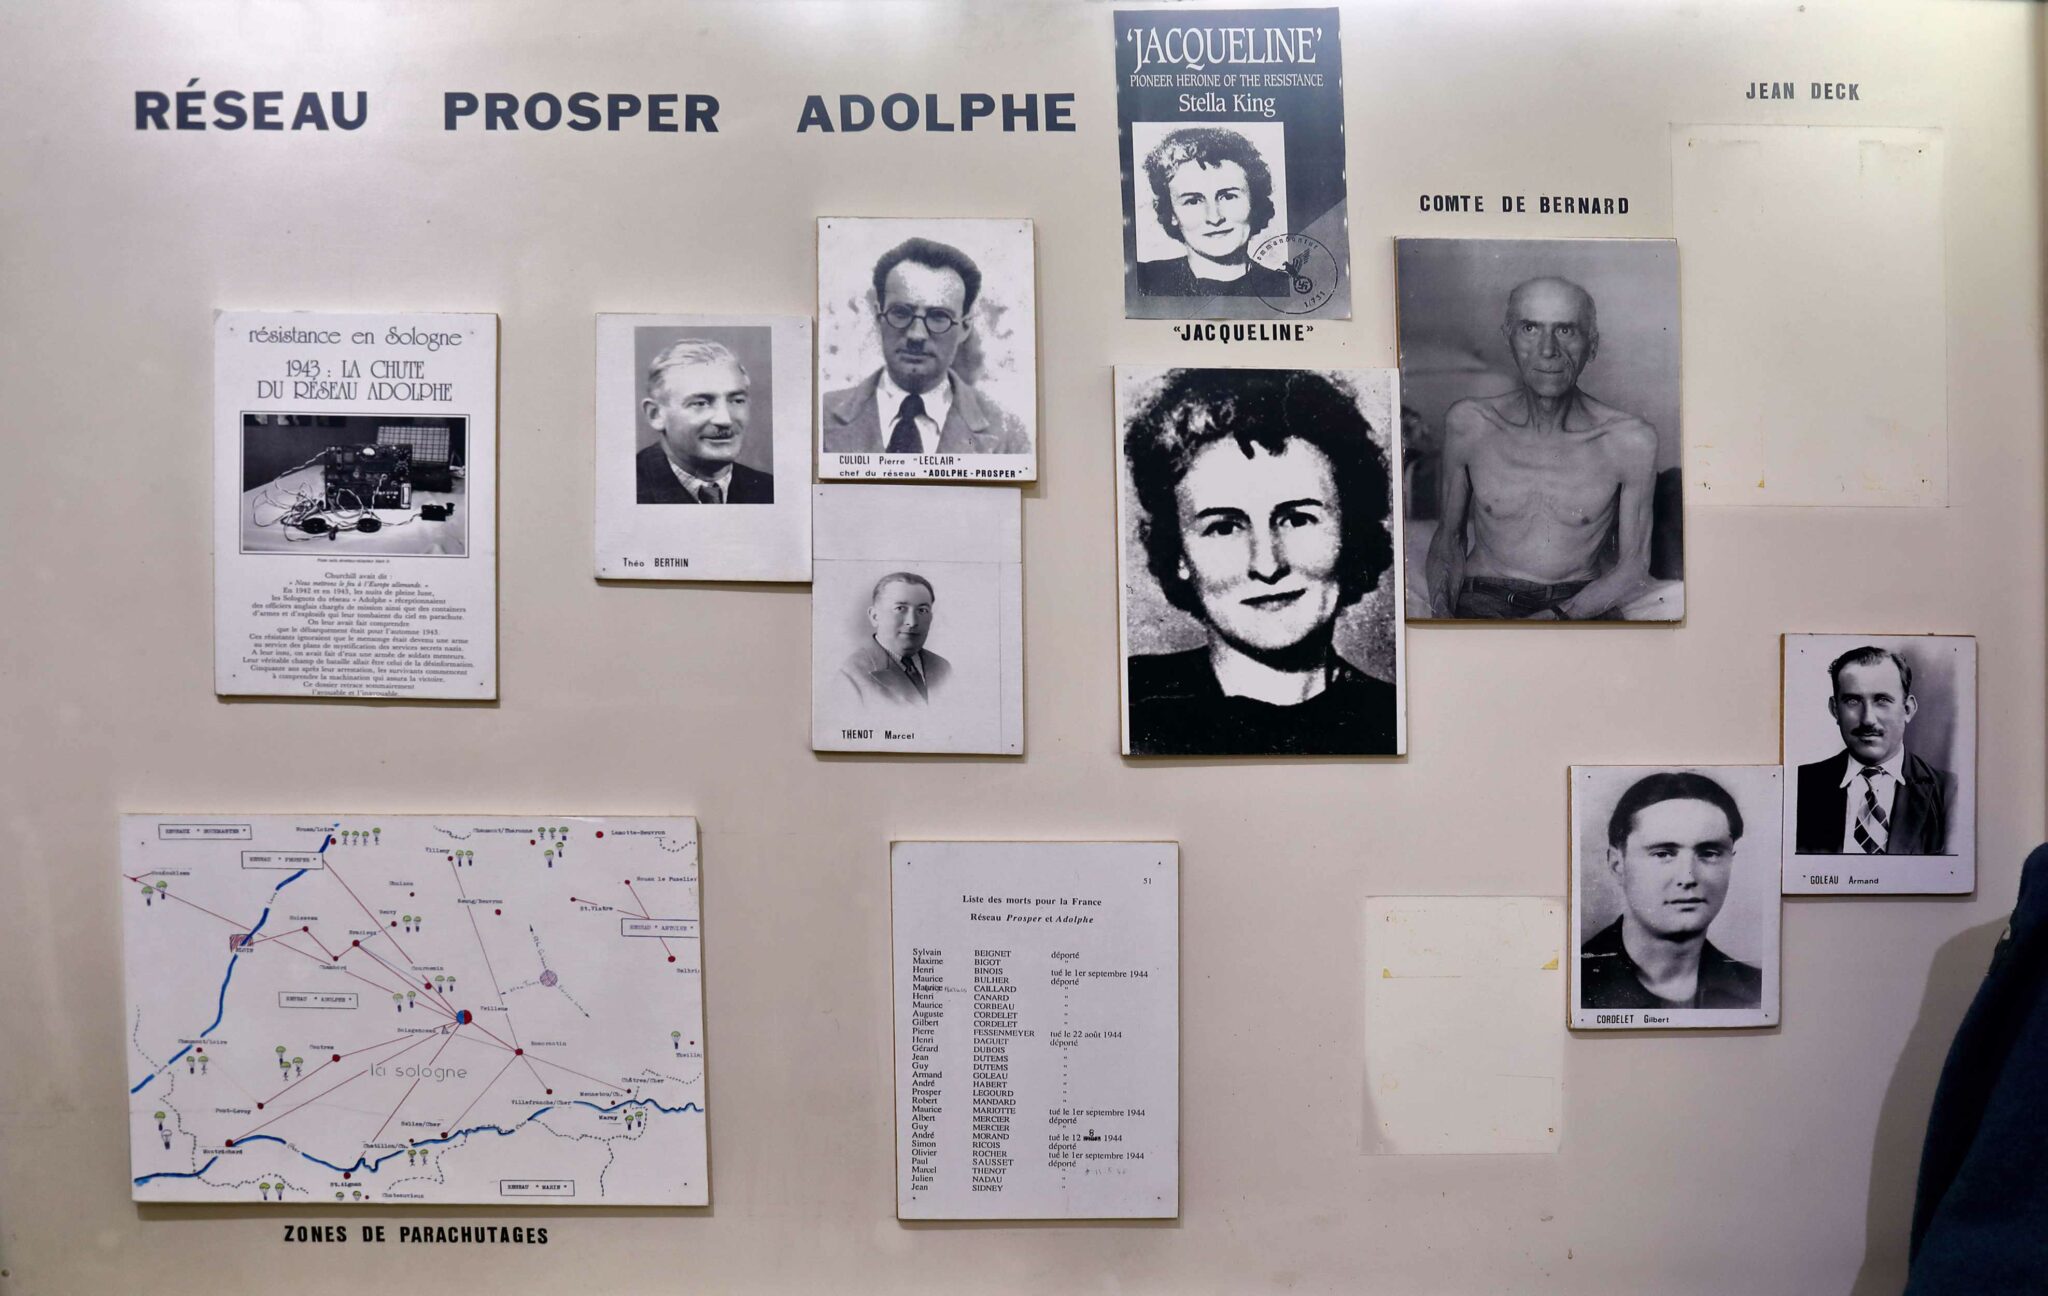 RÉSEAU PROSPER ADOLPHE
'JACQUELINE'
PIONEER HEROINE OF THE RESISTANCE
Stella King
"JACQUELINE"
JEAN DECK
COMTE DE BERNARD
résistance en Sologne
1943 : LA CHUTE
DU RÉSEAU ADOLPHE
Churchill avait dit :
« Nous mettrons le feu à l'Europe allemande. »
En 1942 et en 1943, les nuits de pleine lune,
les Solognots du réseau « Adolphe » réceptionnaient
des officiers anglais chargés de mission ainsi que des containers
d'armes et d'explosifs qui leur tombaient du ciel en parachute.
On leur avait fait comprendre
que le débarquement était pour l'automne 1943.
Ces résistants ignoraient que le mensonge était devenu une arme
au service des plans de mystification des services secrets nazis.
A leur insu, on avait fait d'eux une armée de soldats menteurs.
Leur véritable champ de bataille allait être celui de la désinformation.
Cinquante ans après leur arrestation, les survivants commencent
à comprendre la machination qui assura la victoire.
Ce dossier retrace sommairement
l'avouable et l'inavouable...
Théo BERTHIN
CULIOLI Pierre "LECLAIR"
chef du réseau "ADOLPHE-PROSPER"
THENOT Marcel
GOLEAU Armand
CORDELET Gilbert
RESEAU " PROSPER "
RESEAU " ADOLPHE "
RESEAU " ANTOINE "
Nouan/Loire
Chaumont/Tharonne
Lamotte-Beuvron
Villeny
Nouan le Fuzelier
St.Viatre
Neung/Beuvron
Chambord
Bracieux
Courmemin
Veilleux
Soings
Romorantin
Contres
Ici sologne
Chaumont/Loire
Pont-Levoy
Montrichard
Selles/Cher
Chatillon/Ch.
St.Aignan
Chateauvieux
Villefranche/Cher
Mennetou/Ch.
Châtres/Cher
Maray
ZONES DE PARACHUTAGES
51
Liste des morts pour la France
Réseau Prosper et Adolphe
Sylvain BEIGNET déporté
Maxime BIGOT "
Henri BINOIS tué le 1er septembre 1944
Maurice BULHER déporté
Maurice CAILLARD "
Henri CANARD "
Maurice CORBEAU "
Auguste CORDELET "
Gilbert CORDELET "
Pierre FESSENMEYER tué le 22 août 1944
Henri DAGUET déporté
Gérard DUBOIS "
Jean DUTEMS "
Guy DUTEMS "
Armand GOLEAU "
André HABERT "
Prosper LEGOURD "
Robert MANDARD "
Maurice MARIOTTE tué le 1er septembre 1944
Albert MERCIER déporté
Guy MERCIER "
André MORAND tué le 12 8 1944
Simon RICOIS déporté
Olivier ROCHER tué le 1er septembre 1944
Paul SAUSSET déporté
Marcel THENOT "
Julien NADAU "
Jean SIDNEY "